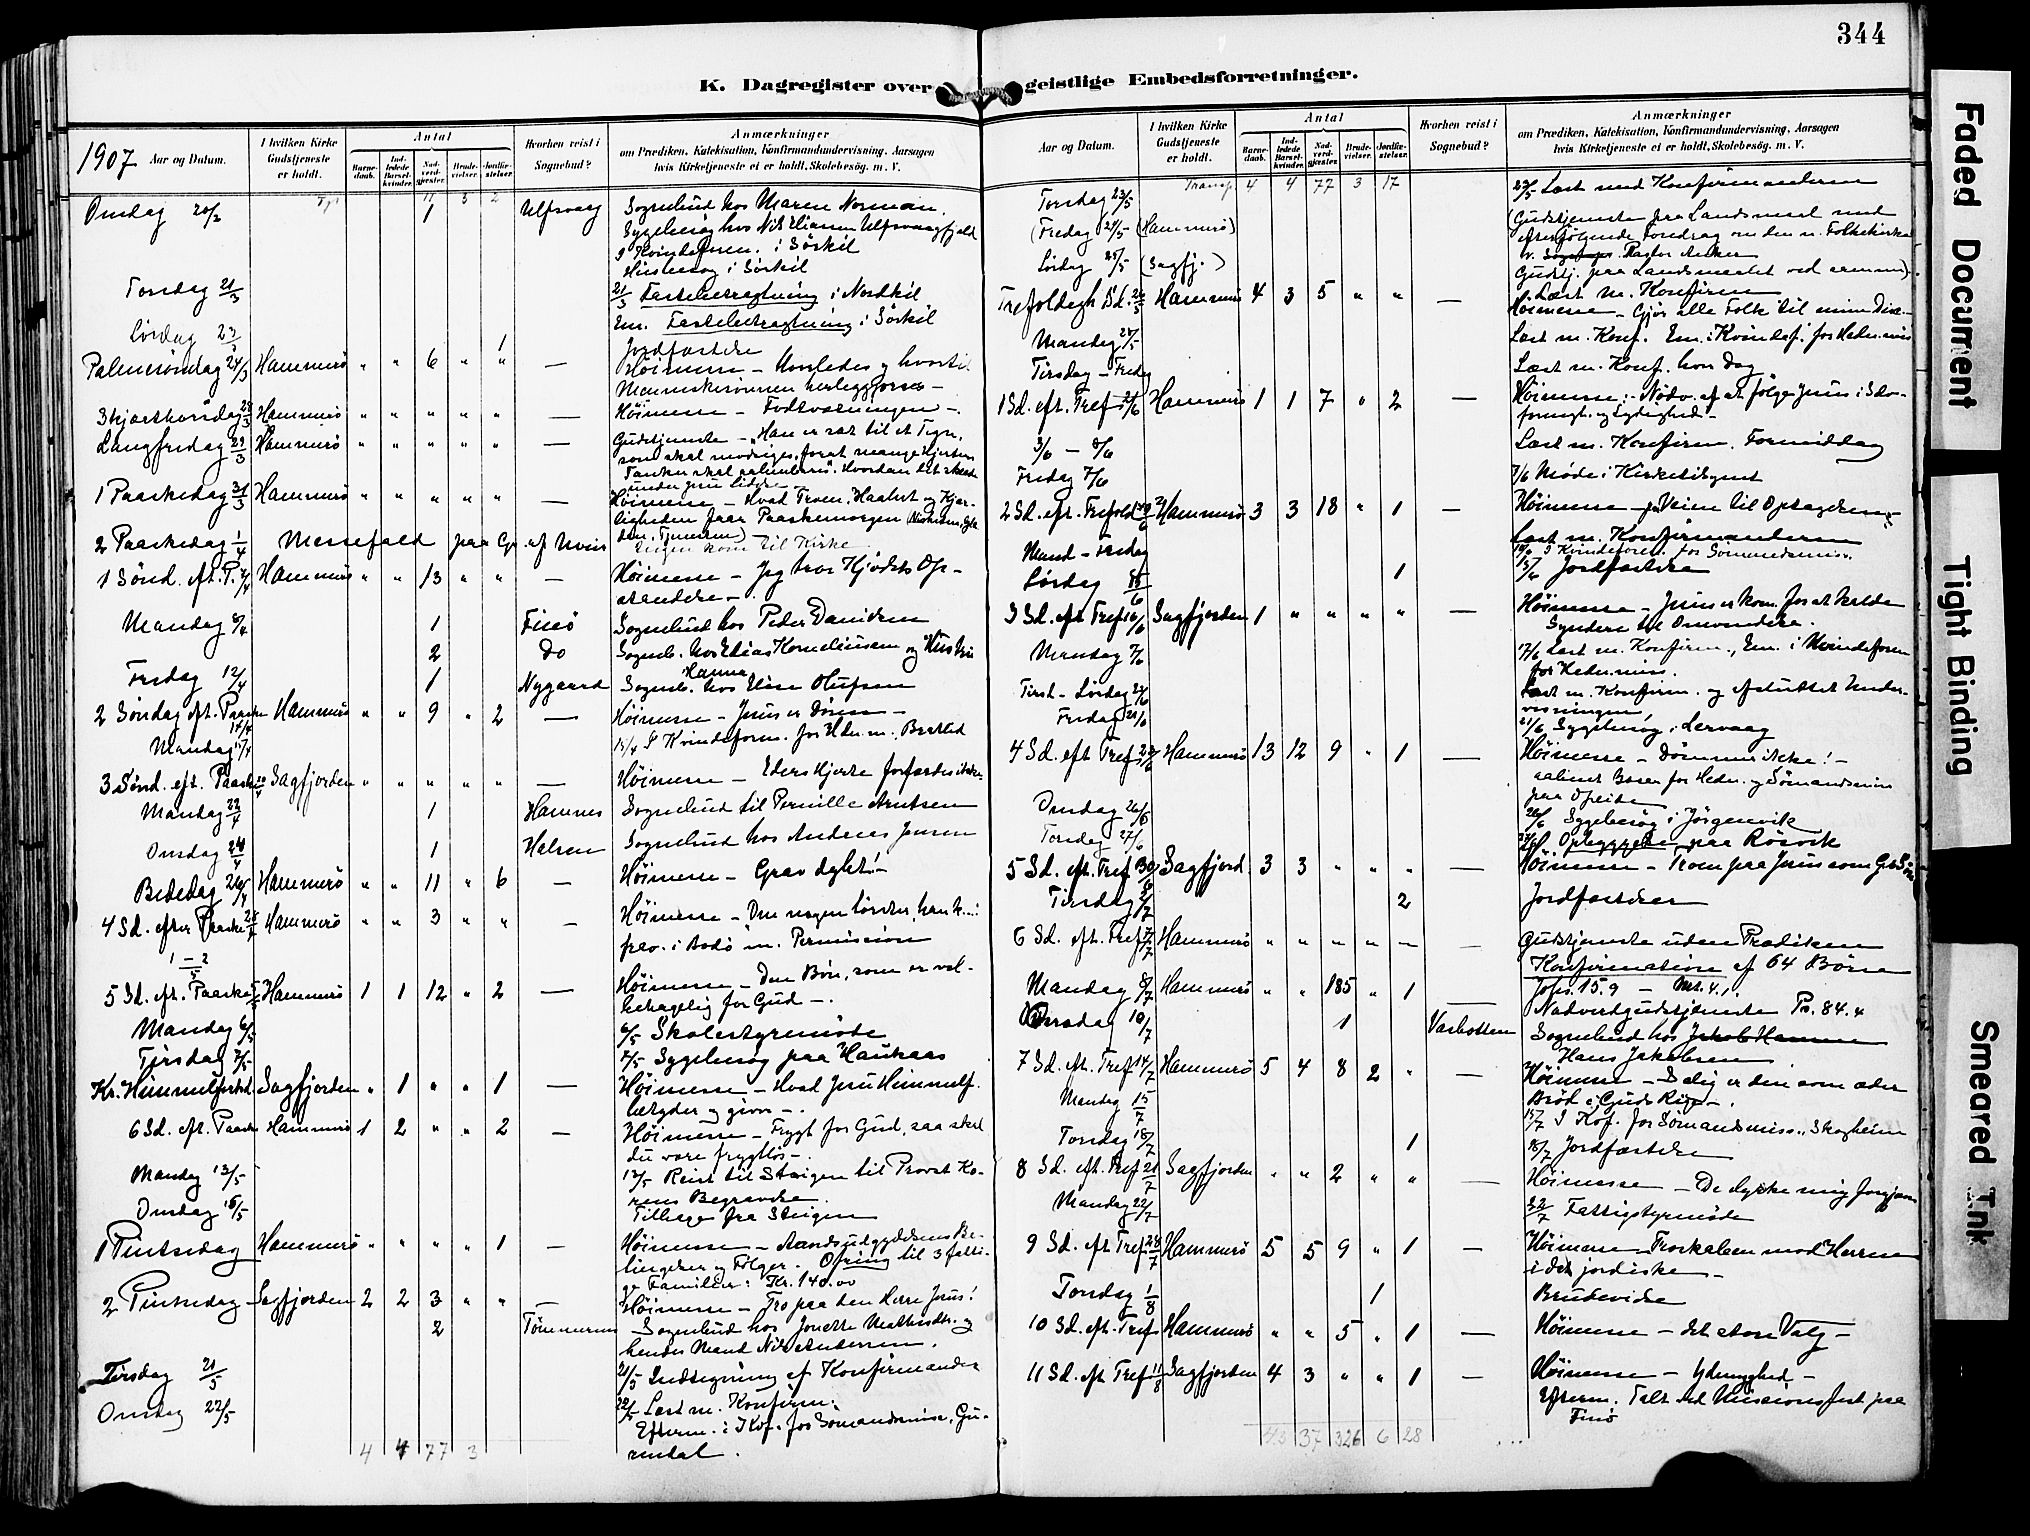 344
K. Dagregister over geistlige Embedsforretninger.
1907 Aar og Datum.
I hvilken Kirke Gudstjeneste er holdt.
Antal
Barnedaab.
Indledede Barselkvinder.
Nadverdgjester.
Brudevielser.
Jordfæstelser.
Hvorhen reist i Sognebud?
Anmærkninger
om Prædiken, Katekisation, Konfirmandundervisning, Aarsagen
hvis Kirketjeneste ei er holdt, Skolebesøg. m. V.
Onsdag 20/3 1 Ulfsvaag Sognebud hos Maren Norman.
Sygebesøg hos Nils Eliassen Ulfsvaagfjeld
I Kvindeforen. i Sörkil
Husbesøg i Sörkil
Torsdag 21/3 21/3 Fastebetragtning i Nordkil
Em. Fastebetragtning i Sörkil
Lördag 23/3 1 Jordfæstelse
Palmesöndag 24/3 Hammerö " " 6 " " — Höimesse — Hvorledes og hvortil
Menneskesönnen herliggjöres —
Skjærthorsdag 28/3 Hammerö " " " " " — Höimesse — Fodtvætningen —
Langfredag 29/3 Hammerö " " " " " — Gudstjeneste — "Han er sat til et Tegn,
som skal modsiges, forat mange Hjerters
Tanker skal aabenbares". Hvordan det skede
under Jesu Lidelse
1 Paaskedag 31/3 Hammerö " " " " " — Höimesse — Hvad Troen, Haabet og Kjær-
ligheden faar Paaskemorgen
2 Paaskedag 1/4 Messefald paa Gr. af Uveir Ingen kom til Kirke
1 Sönd. eft. P. 7/4 Hammerö " " 13 " " — Höimesse — Jeg tror Kjödets Op-
standelse —
Mandag 8/4 1 Finö Sognebud hos Peder Danielsen
2 Do Sogneb. hos Elias Korneliussen og Hustru
Fredag 12/4 1 Nygaard Sogneb. hos Hanna Olufsen
2 Söndag eft. Paaske 14/4 Hammerö " " 9 " 2 — Höimesse — Jesus er Dören —
Mandag 15/4 15/4 I Kvindeforen. for Hedn. m.
3 Sönd. eft. Paaske 21/4 Sagfjorden " " " " " — Höimesse — Eders Hjerte forfærdes ikke
Mandag 22/4 1 Hamnes Sognebud til Pernille Arntsen
Onsdag 24/4 1 Helsen Sognebud hos Anders Jensen
Bededag 26/4 Hammerö " " 11 " 6 — Höimesse — Grav dybt! —
4 Sd. efter Paaske 28/4 Hammerö " " 3 " " — Höimesse — Den nogen törster, han k...!
1—2/5 præd. i Bodö m. Permission
5 Sd. eft. Paaske 5/5 Hammerö 1 1 12 " 2 — Höimesse — Den Bön, som er vel-
behagelig for Gud —.
Mandag 6/5 6/5 Skolestyremöde
Tirsdag 7/5 7/5 Sygebesøg paa Haukaas
Kr. Himmelfartsd. Sagfjorden " 1 " " 1 — Höimesse — Hvad Jesu Himmelf.
betyder og giver —.
6 Sd. eft. Paaske Hammerö 1 2 " " 2 — Höimesse — Frygt for Gud, saa skal
du være frygtlös —.
Mandag 13/5 13/5 Reist til Steigen til Provst Ko-
rens Begravelse.
Onsdag 15/5 Tilbage fra Steigen
1 Pintsedag Hammerö " " " " 1 — Höimesse — Aandsudgydelsens Be-
tingelser og Fölger. Ofring til 3 fatti-
ge Familier: Kr. 140.00
2 Pintsedag Sagfjorden 2 2 3 " " — Höimesse — Tro paa den Herre Jesus!
2 Tömmernes Sognebud hos Jonette Mathisdtr. og
hendes Mand Nils Andersen.
Tirsdag 21/5 21/5 Indtegning af Konfirmander
Onsdag 22/5 22/5 Læst m. Konfirm.
Efterm. i Kvf. for Sömandsmiss., Gu-
rendal.
4 4 77 3
Aar og Datum.
I hvilken Kirke Gudstjeneste er holdt.
Antal
Barnedaab.
Indledede Barselkvinder.
Nadverdgjester.
Brudevielser.
Jordfæstelser.
Hvorhen reist i Sognebud?
Anmærkninger
om Prædiken, Katekisation, Konfirmandundervisning, Aarsagen
hvis Kirketjeneste ei er holdt, Skolebesög. m. V.
Transp. 4 4 77 3 17
Torsdag 23/5 23/5 Læst med Konfirmanderne
(Fredag 24/5 (Hammerö) (Gudstjeneste fra Landsmaal med
efterfölgende Foredrag om den n. Folkekirke
v. Pastor Anker
Lördag 25/5 (Sagfj.) Gudstj. paa Landsmaalet ved samme)
Læst m. Konfirm
Trefoldigh. Sd. 26/5 Hammerö 4 3 5 " " — Höimesse — Gjör alle Folk til mine Disc.
Mandag 27/5 Læst m. Konf. Em. i Kvindef. for Hedn. mis
Tirsdag — Fredag Læst m. Konf. hver Dag
1 Sd. eft. Tref 2/6 Hammerö 1 1 7 " 2 — Höimesse: Nödv. af at fölge Jesus i Selv-
fornegt. og Lydighed —
3/6 — 8/6 Læst m. Konfirm. Formiddag
Fredag 7/6 7/6 Möde i Kirketilsynet
2 Sd. eft. Trefold 9/6 Hammerö 3 3 18 " 1 — Höimesse — paa Veien til Opsagelsen
Mand — Fredag Læst m. Konfirmanderne
I Kvindeforen. for Sömandsmiss.
Lördag 15/6 1 15/6 Jordfæstelse
3 Sd. eft Tref 16/6 Sagfjorden 1 " " " " — Höimesse — Jesus er kom. for at kalde
Syndere til Omvendelse.
Mandag 17/6 17/6 Læst m. Konfirm., Em. i Kvindeforen
for Hedn. mis.
Tirsd — Lördag 22/6 Læst m. Konfirm. og afsluttet Under-
visningen
Fredag 21/6 21/6 Sygebesög i Lervaag
4 Sd. eft Tref 23/6 Hammerö 13 12 9 " 1 — Höimesse — Dömmer ikke! —
aabnet Basar for Hedn. og Sömandsmis
paa Opeide
Onsdag 26/6 26/6 Sygebesög i Jörgenvik
Torsdag 27/6 27/6 Opbyggelse paa Rösvik
5 Sd. eft. Tref 30/6 Sagfjord. 3 3 " " " — Höimesse — Troen paa Jesus som Guds Sön
Tirsdag 2/7 2 Jordfæstelser
6 Sd. eft. Tref 7/7 Hammerö " " " " — — Gudstjeneste uden Prædiken
Konfirmation af 64 Börn
Joh. 15.9 — Mt. 4.1.
Mandag 8/7 Hammerö " " 185 " 1 — Nadverdgudstjeneste Ps. 84.4
Onsdag 10/7 1 Varbotten Sognebud hos Jakob Hansen
Hans Jakobsen
7 Sd. eft. Tref 14/7 Hammerö 5 4 8 2 " — Höimesse — Salig er den som æder
Bröd i Guds Rige —.
Mandag 15/7 15/7 I Kvf. for Sömandsmiss., Skogheim
Torsdag 18/7 1 18/7 Jordfæstelse
8 Sd. eft. Tref 21/7 Sagfjorden " " 2 " " — Höimesse — De dyrke mig forgjæves
Mandag 22/7 22/7 Fattigstyremöde
9 Sd. eft Tref 28/7 Hammerö 5 5 9 " 1 — Höimesse Troskaben mod Herren
i det jordiske —
Torsdag 1/8 1 Brudevielse
10 Sd. eft. Tref Hammerö " " 5 " 1 — Höimesse — det store Valg —
11 Sd. eft Tref 11/8 Sagfjorden 4 3 " " 1 — Höimesse — Ydmyghed —
Efterm. Talt ved Missionsfest paa
Finö
43 37 326 6 28
Faded Document
Tight Binding
Smeared Ink